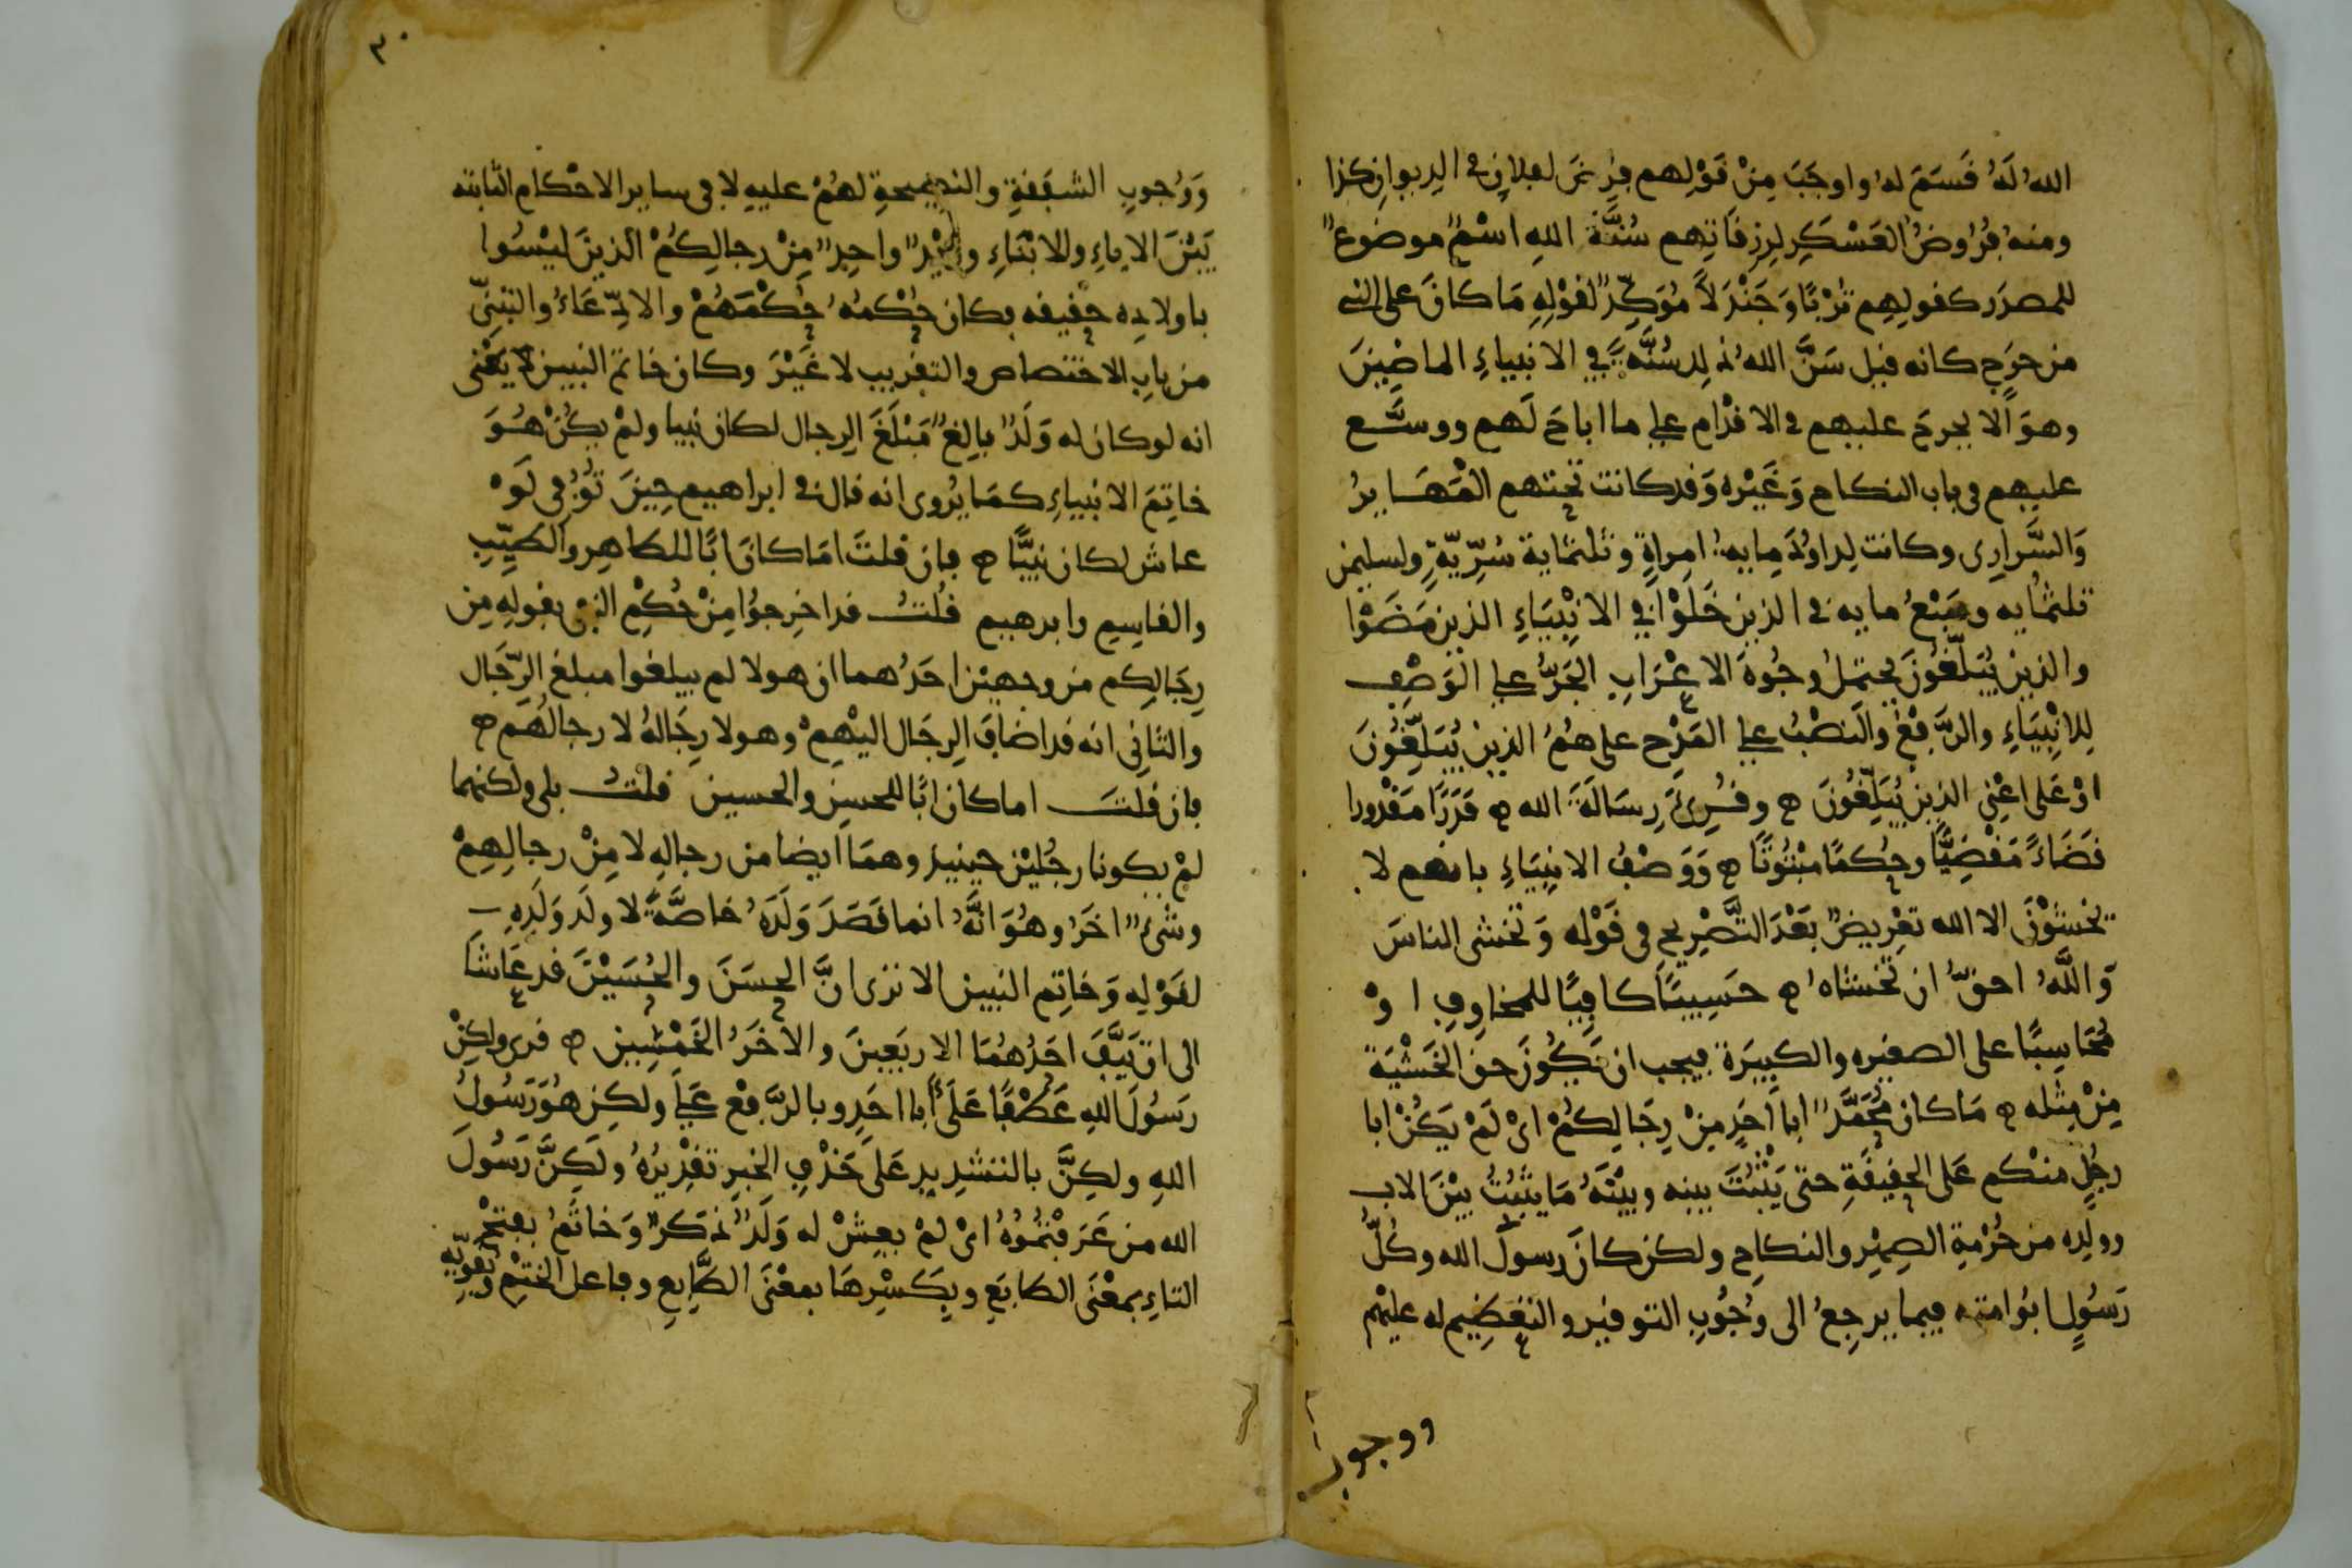 الله لَهُ قَسَمَ له واوجَبَ مِنْ قَوْلِهم فرض لفلان في الديوان كذا
ومنه فُرُوضُ العَسْكَرِ لرزقاتهم سُنَّةَ اللهِ اسْمٌ موضوعٌ
للمصدر كقولهم تُرْبًا وَجَنْدَلاً مُؤكِّدٌ لقوله مَا كانَ على النبي
من حرَج كانه قيل سَنَّ اللهُ ذلك سُنَّةً في الانبياءِ الماضِينَ
وهوَ الا يحرجَ عليهم في الاقْدام على ما اباحَ لَهم ووسَّع
عليهم في باب النكاح وَغَيْره وَقد كانت تحتهم المْهَايرُ
وَالسَّرارِي وكانت لداوُدَ مايهُ امراةٍ وثلثماية سُرّيّةٍ ولسليمن
ثلثمايه وسَبْعُ مايه في الذين خَلَوْا في الانْبِيَاءِ الذين مَضَوْا
والذين يُبَلِّغُونَ يحتملُ وجُوهَ الاعْرَابِ الجَرُّ على الوَصْفِ
لِلانْبِيَاءِ والرَّفعُ والنصْبُ على المَدْح على هُمُ الذين يُبَلِّغُونَ
اوْ عَلى اعْنِي الذين يُبَلِّغُونَ ه وقُرِئَ رسَالَةَ الله ه قَدَرًا مَقْدورا
قَضَاءً مَقْضِيًّا وحُكمًا مبْتُوتًا ه وَوَصْفُ الانبِيَاءِ بانهم لا
يخشَوْنَ الا الله تعْرِيضٌ بَعْدَ التَّصْرِيحِ في قَوْله وَتخشى الناسَ
وَاللَّهُ احقُّ ان تخشاهُ ه حَسِيبًا كافِيًا للمخاوِفِ اوْ
مُحَاسِبًا على الصغيره والكبيرَة فيجب ان يكُونَ حق الخَشْيَة
مِنْ مِثله ه مَا كان مُحَمَّدٌ ابا اَحَدٍ مِنْ رِجَالِكُمْ ايْ لَمْ يَكُنْ ابا
رجُلٍ منْكم عَلى الحقيقَةِ حتى يَثْبُتَ بينه وبيْنَهُ مَا يثبُتُ بيْنَ الاب
وولدِه من حُرْمةِ الصِهْرِ والنكاحِ ولكن كانَ رسولَ الله وكُلُّ
رَسُولٍ ابُو امته فيما يرجِعُ الى وُجُوبِ التوقير والتعظيم له عليْهم
ووجوب
٣٠
وَوُجوبِ الشفَقةِ والنصيحةِ لهُمْ عليهِ لا في ساير الاحْكام الثابته
بَيْنَ الاباءِ والابْنَاءِ وزَيْدٌ واحِدٌ مِنْ رجالِكُمْ الذينَ ليْسُوا
باولادِه حقيقه فكان حُكْمُهُ حُكْمَهُمْ والادِّعَاءُ والتبَنّي
من بابِ الاختصاص والتقريب لا غَيْرَ وكان خاتمَ النبيين يَعْني
انه لو كان له وَلَدٌ بالغٌ مَبْلَغَ الرجال لكان نبيا ولمْ يكُنْ هُوَ
خاتِمَ الانبياءِ كمَا يُروى انه قال في ابراهيم حِينَ تُوُفي لَوْ
عاش لكان نبيًّا ه فان قلتَ امَا كانَ ابًا للطاهِر والطَّيِّبِ
والقاسِم وابرهيم قُلتُ قد اخرجوُا مِنْ حُكْمِ النفى بقولِهِ مِن
رِجَالِكم من وجهيْن احَدُهما ان هولا لم يبلغوا مبلغ الرّجَال
والثاني انه قد اضافَ الرجَال اليْهِمْ وهولا رِجَالهُ لا رجالُهُم ه
فان قلتَ اما كان ابًا للحسنِ والحسين قلتُ بلى ولكنهما
لمْ يكونا رجُليْن حينيذ وهمَا ايضا من رجالِهِ لا مِنْ رجالِهِمْ
وشىءٌ اخَرُ وهُوَ انَّهُ انما قصَدَ وَلَدَهُ خاصَّةً لا ولَد وَلَدِهِ
لقَوْلِه وَخاتِم النبيين الا ترى انَّ الحسَنَ والحُسَيْنَ قد عَاشَا
الى ان نَيَّفَ احَدُهُمَا الاربَعِينَ والاخَرُ الخَمْسِين ه قرى ولكِنْ
رَسُولَ اللهِ عَطْفًا عَلَى ابا احَدٍ وبالرَّفع عَلى ولكِن هُوَ رَسُولُ
اللهِ ولكِنَّ بالتشديدِ عَلَى حَذْفِ الخبرِ تقْدِيرُهُ ولَكِنَّ رَسُولَ
الله من عَرَفتُمُوُهُ ايْ لمْ يعِشْ له وَلَدٌ ذكَرٌ وَخاتَمُ بفتْحِ
التاءِ بمعْنَى الطابَعِ وبِكَسْرِهَا بمعْنَى الطَّابِعِ وفاعلِ الختْمِ وتُقوّيه